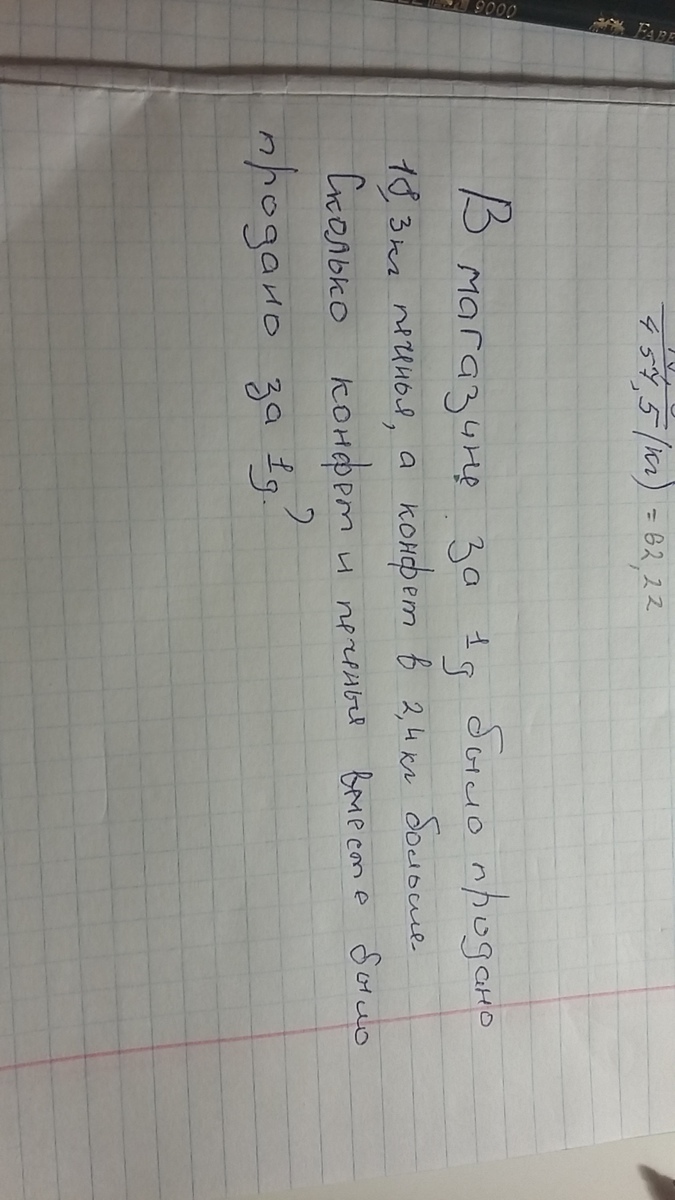 9000
FABE
457,5(кг) = 82,22
В магазине за 1д было продано
18,3кг печенья, а конфет в 2,4кг больше.
Сколько конфет и печенья вместе было
продано за 1д.?